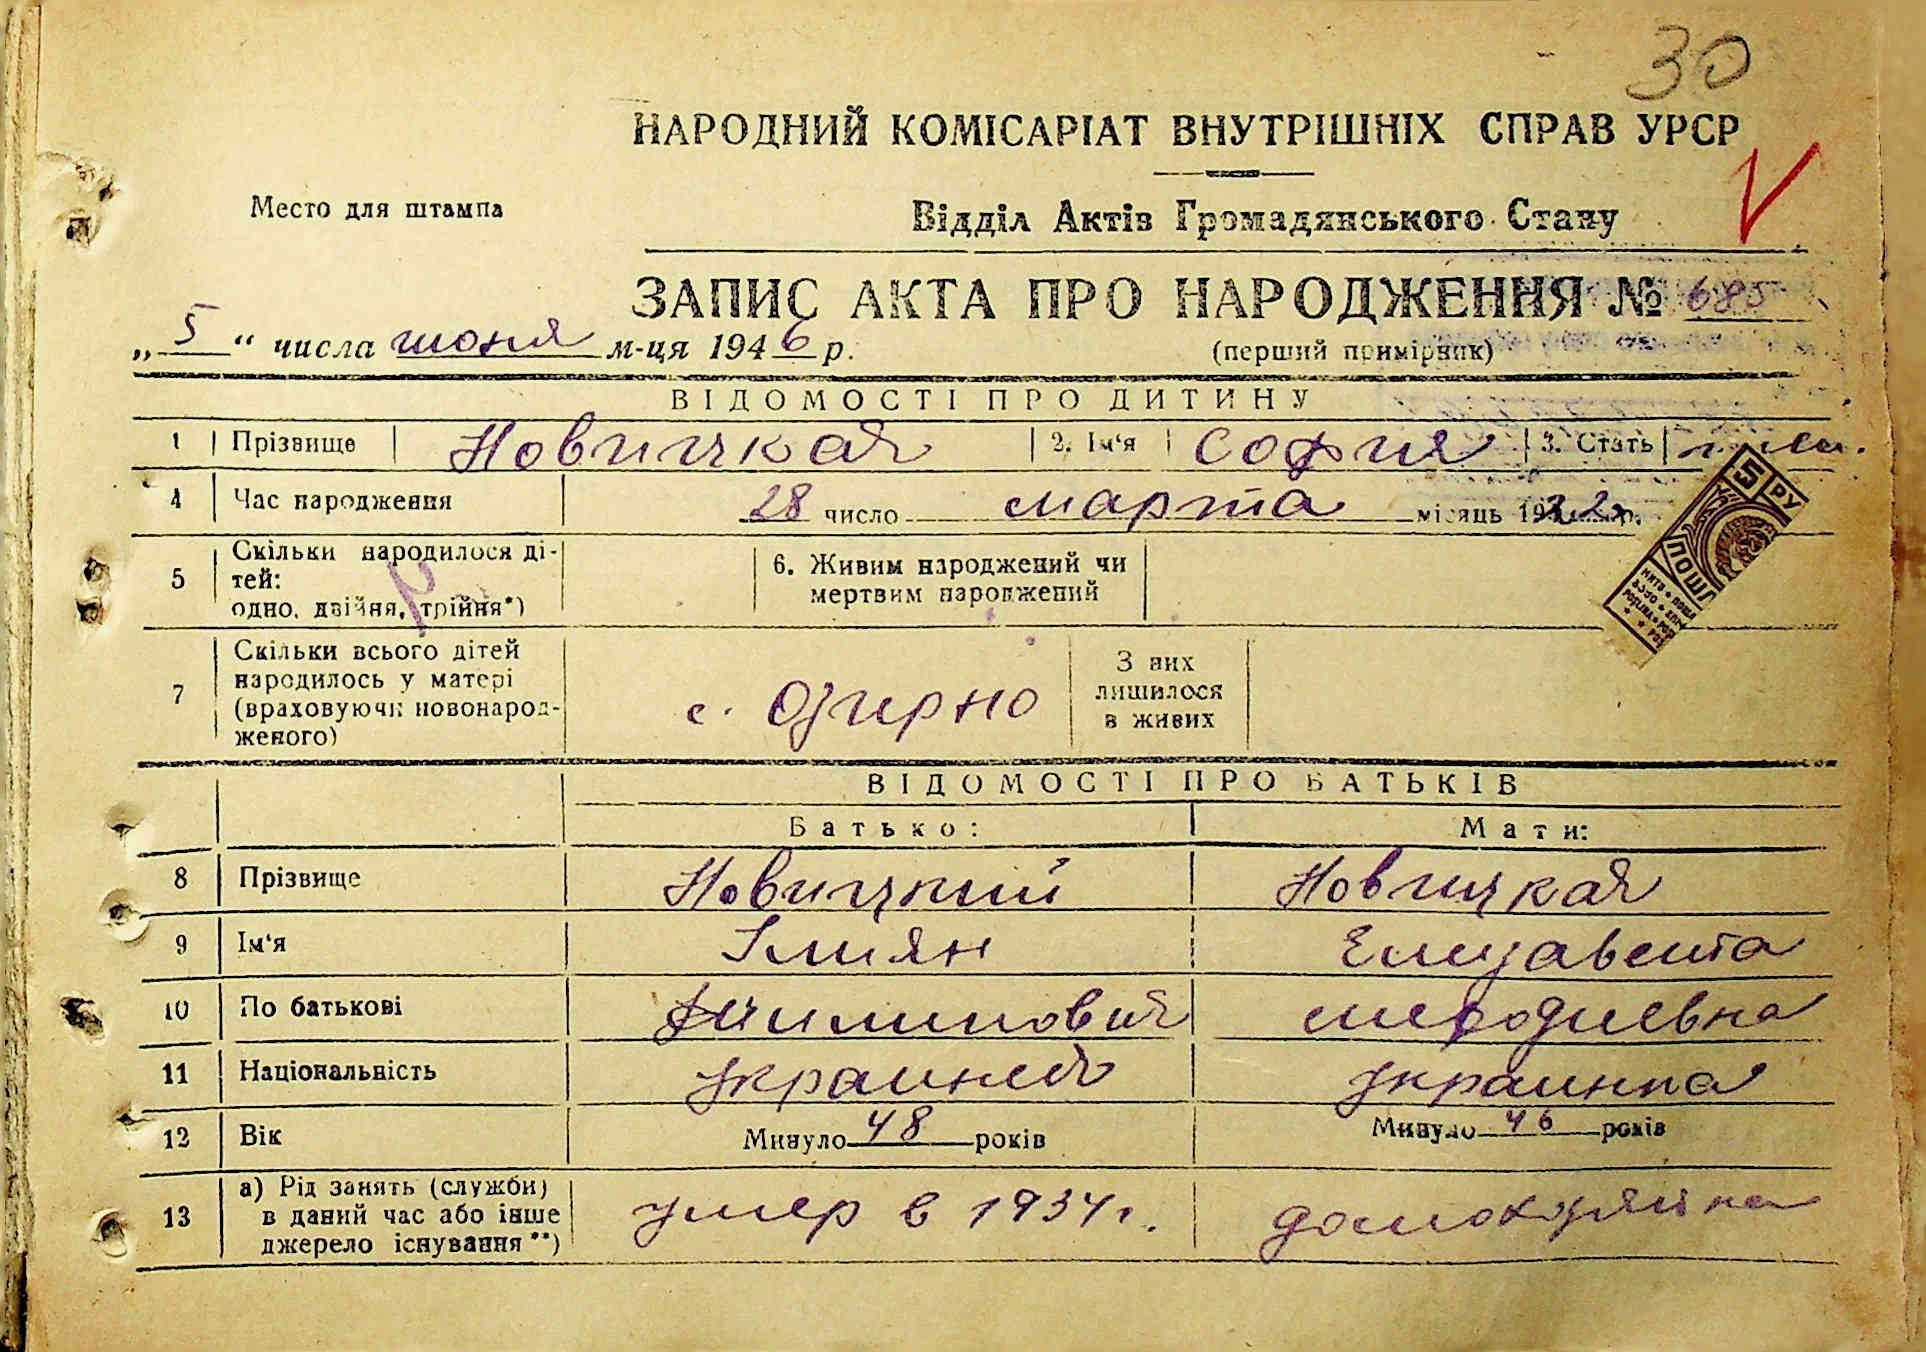 30
НАРОДНИЙ КОМІСАРІАТ ВНУТРІШНІХ СПРАВ УРСР
Место для штампа
Відділ Актів Громадянського Стану
ЗАПИС АКТА ПРО НАРОДЖЕННЯ № 685
„5“ числа июня м-ця 1946 р.
(перший примірник)
ВІДОМОСТІ ПРО ДИТИНУ
1 Прізвище Новицкая 2. Ім'я София 3. Стать
4 Час народження 28 число марта місяць 1922 р.
5 Скільки народилося ді-
тей:
одно, двійня, трійня*)
6. Живим народжений чи
мертвим народжений
7 Скільки всього дітей
народилось у матері
(враховуючи новонарод-
женого)
с. Озирно
З них
лишилося
в живих
5 РУ
ПОШ
ВІДОМОСТІ ПРО БАТЬКІВ
Батько: Мати:
8 Прізвище Новицкий Новицкая
9 Ім'я Імиян Елизавета
10 По батькові мефодиевна
11 Національність украинец украинка
12 Вік Минуло 48 років Минуло 46 років
13 а) Рід занять (служби)
в даний час або інше
джерело існування**)
умер в 1934 г. домохозяйка